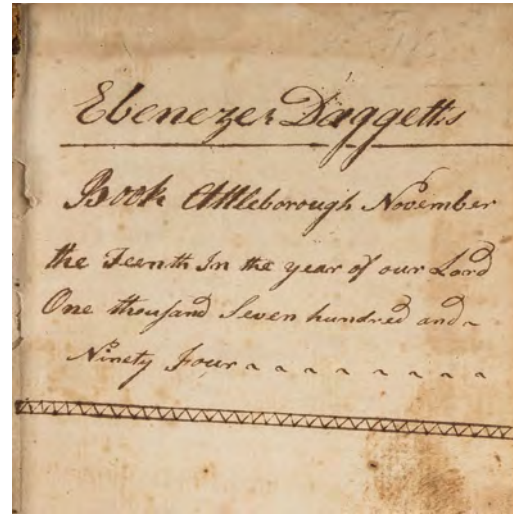 Ebenezer Daggetts
Book Attleborough November
the Teenth In the year of our Lord
One thousand Seven hundred and
Ninety Four